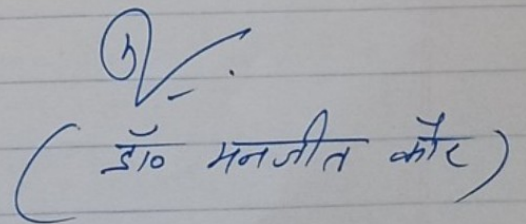 ( डॉ० मनजीत कौर )